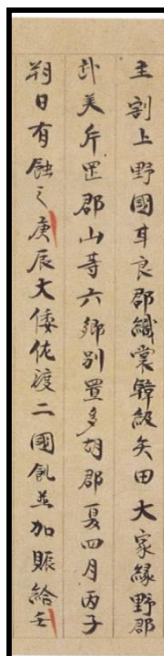 主割上野國耳良郡織裳韓級矢田大家縁野郡
美片罡郡山等六郷別置多胡郡夏四月丙子
朔日有蝕之庚辰大倭佐渡二國飢並加賑給壬